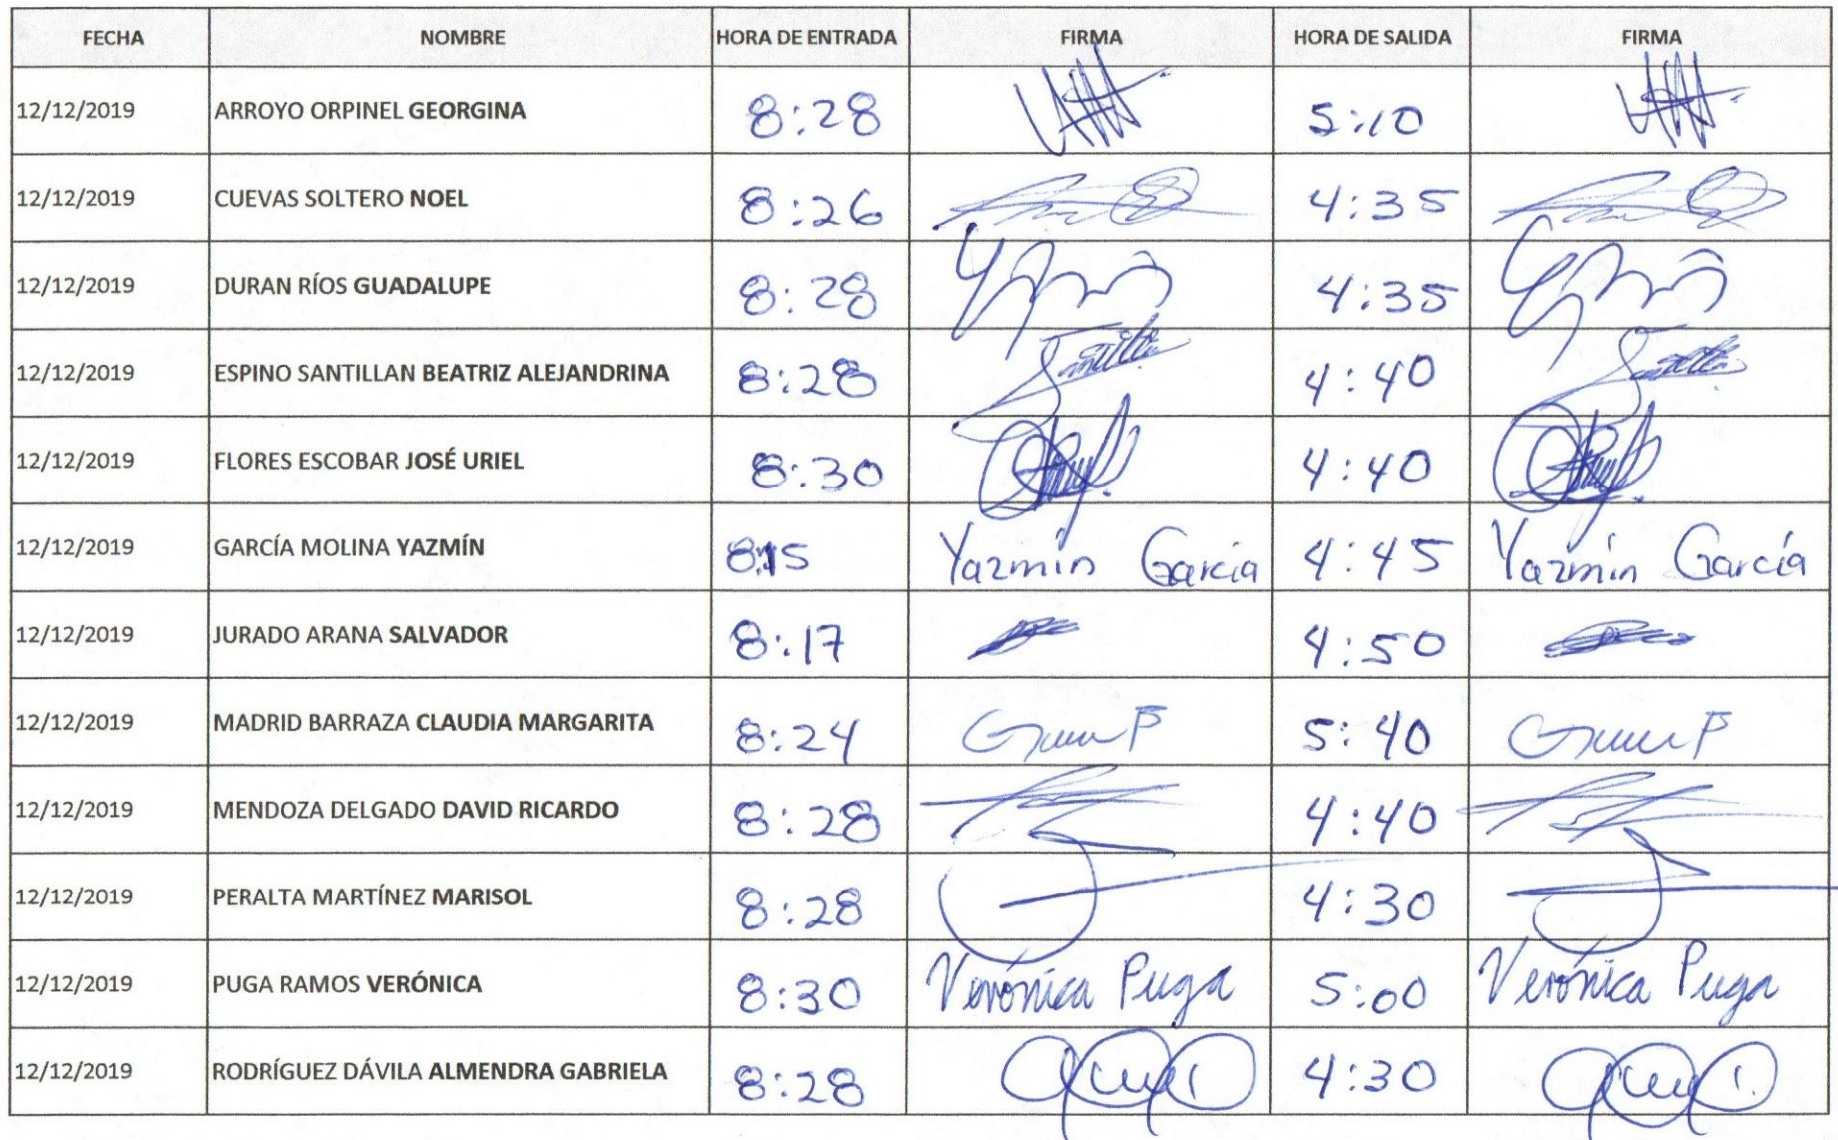 FECHA NOMBRE HORA DE ENTRADA FIRMA HORA DE SALIDA FIRMA
12/12/2019 ARROYO ORPINEL GEORGINA 8:28 5:10
12/12/2019 CUEVAS SOLTERO NOEL 8:26 4:35
12/12/2019 DURAN RÍOS GUADALUPE 8:28 4:35
12/12/2019 ESPINO SANTILLAN BEATRIZ ALEJANDRINA 8:28 4:40
12/12/2019 FLORES ESCOBAR JOSÉ URIEL 8:30 4:40
12/12/2019 GARCÍA MOLINA YAZMÍN 8:15 Yazmín García 4:45 Yazmín García
12/12/2019 JURADO ARANA SALVADOR 8:17 4:50
12/12/2019 MADRID BARRAZA CLAUDIA MARGARITA 8:24 5:40
12/12/2019 MENDOZA DELGADO DAVID RICARDO 8:28 4:40
12/12/2019 PERALTA MARTÍNEZ MARISOL 8:28 4:30
12/12/2019 PUGA RAMOS VERÓNICA 8:30 Verónica Puga 5:00 Verónica Puga
12/12/2019 RODRÍGUEZ DÁVILA ALMENDRA GABRIELA 8:28 4:30